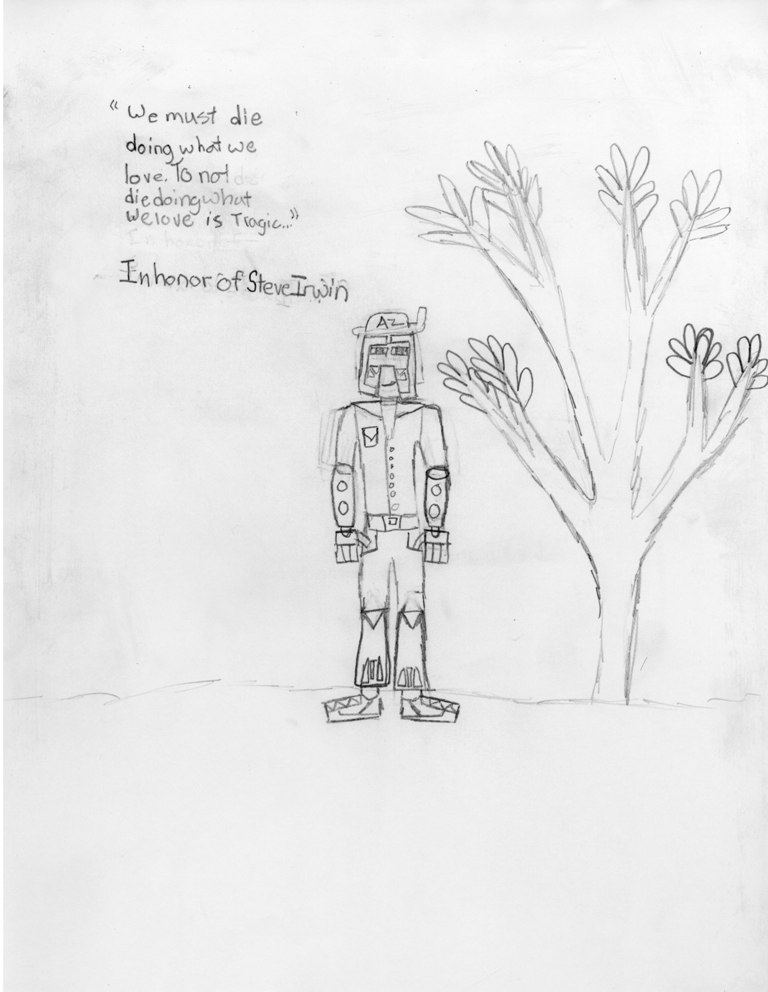 "We must die
doing what we
love. To not
die doing what
We love is Tragic..."
In honor of Steve Irwin
AZ